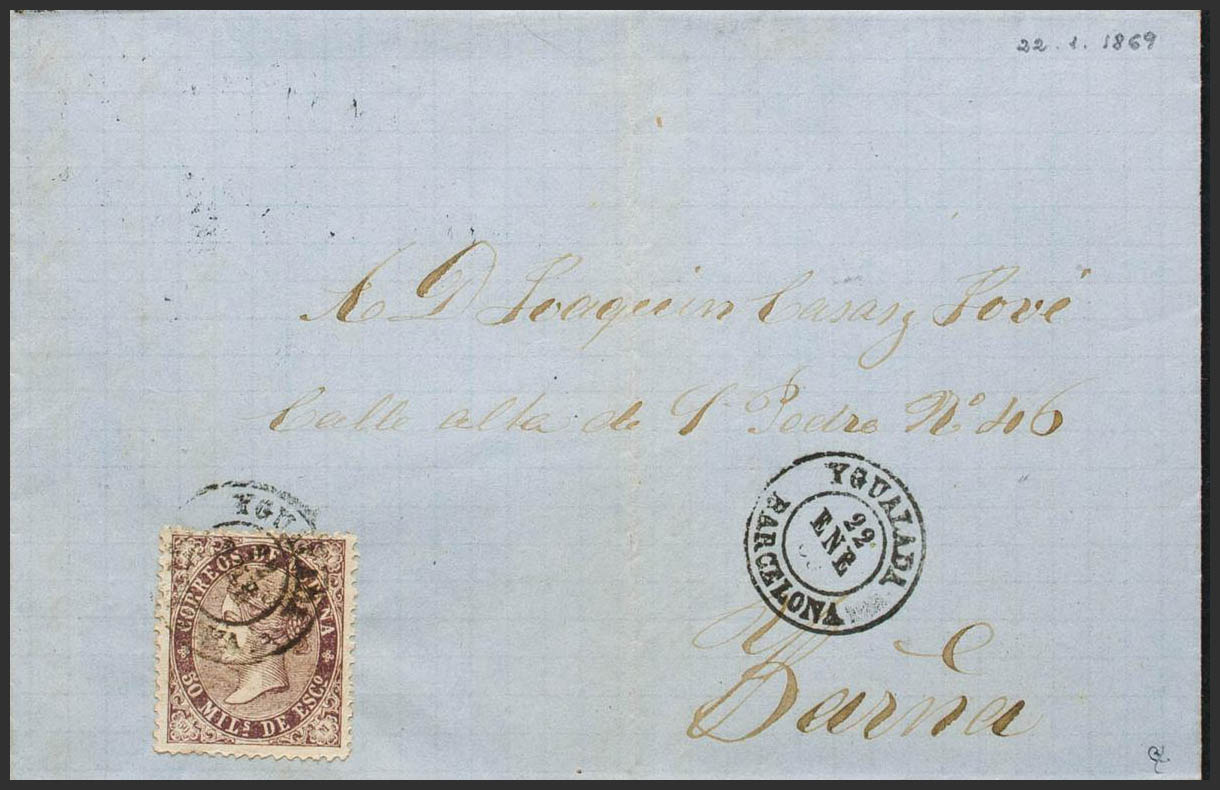 22.1.1869
A D Joaquin Casas y Jové
Calle alta de Sn Pedro No 46
YGUALADA
22
ENE
BARCELONA
Barña
YGU
CORREOS DE ESPAÑA
50 MILS DE ESCO